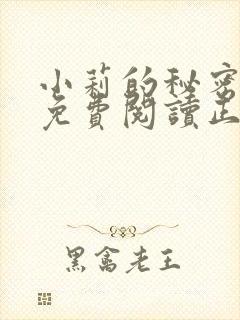 小莉的秘密
免費閱讀正
黑禽老王